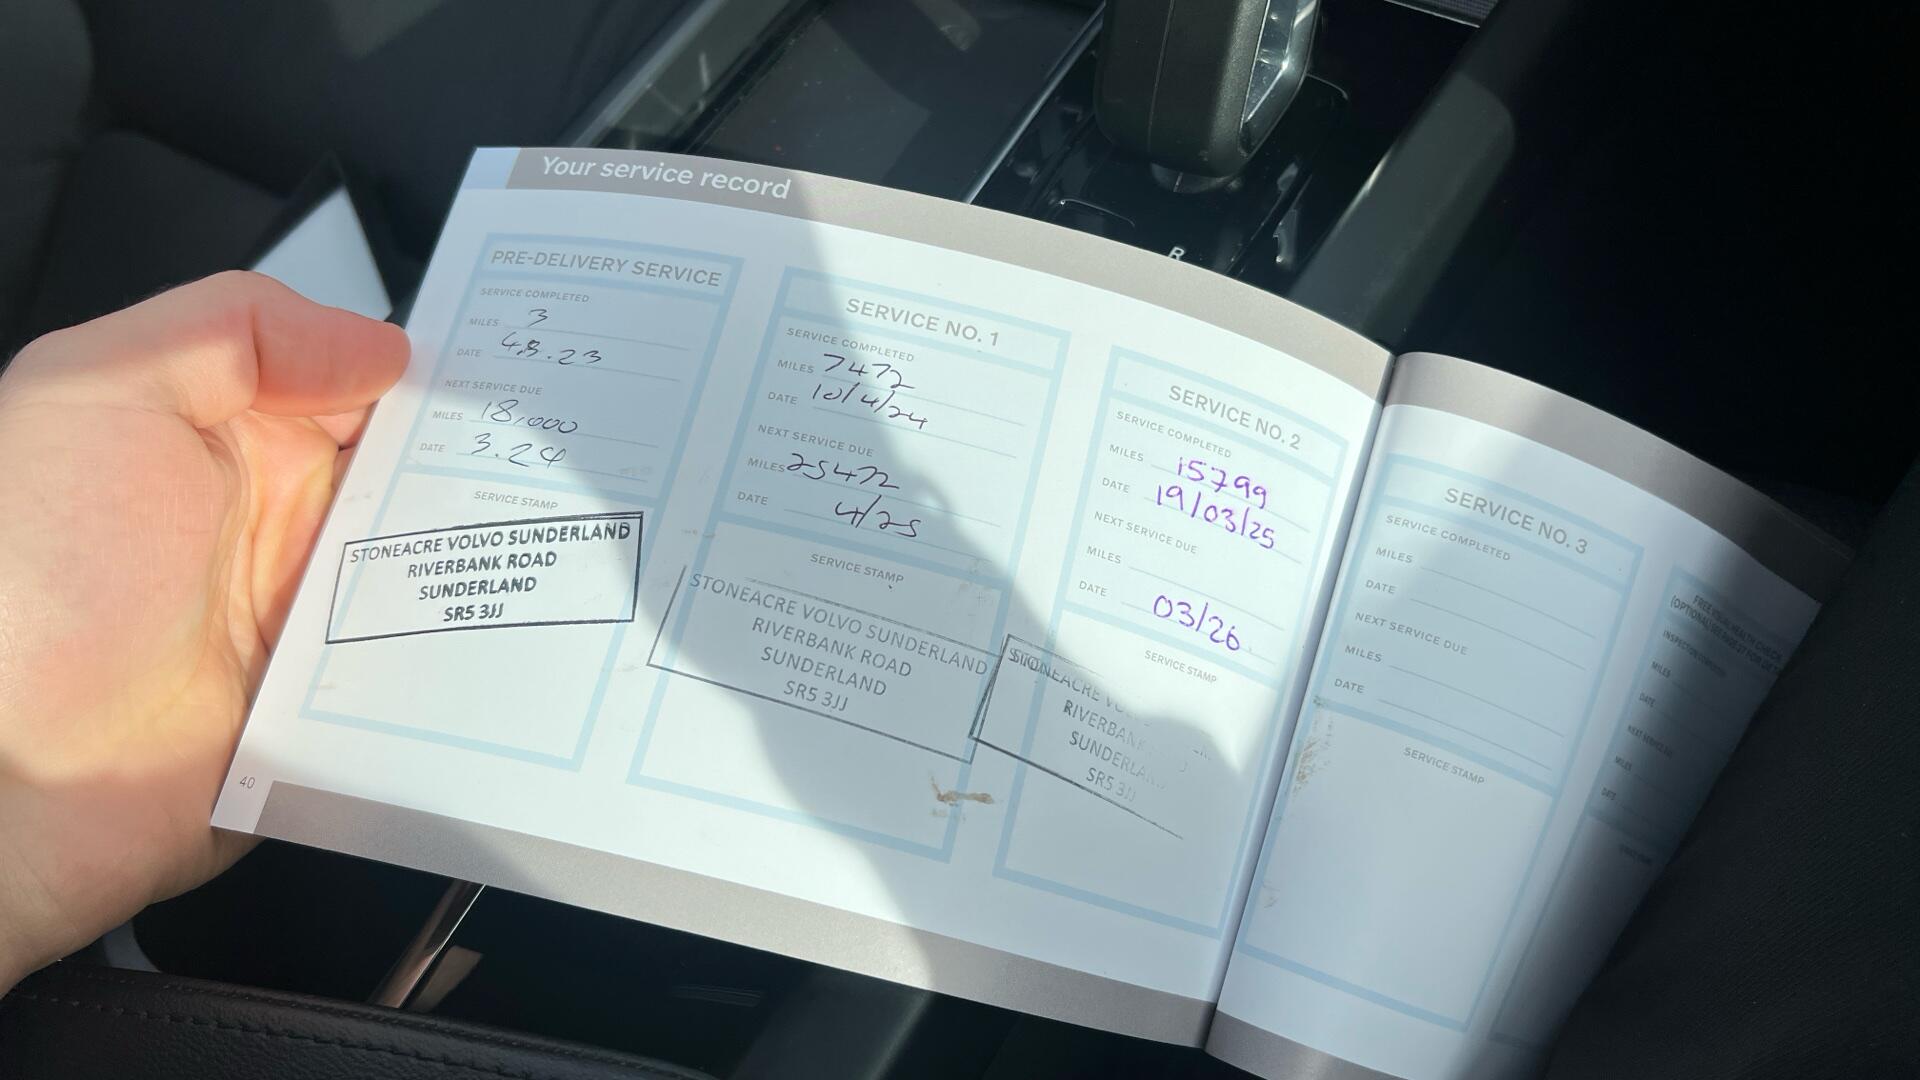 Your service record
PRE-DELIVERY SERVICE
SERVICE COMPLETED
MILES 3
DATE 4.3.23
NEXT SERVICE DUE
MILES 18,000
DATE 3.24
SERVICE STAMP
STONEACRE VOLVO SUNDERLAND
RIVERBANK ROAD
SUNDERLAND
SR5 3JJ
40
SERVICE NO. 1
SERVICE COMPLETED
MILES 7472
DATE 10/4/24
NEXT SERVICE DUE
MILES 25472
DATE 4/25
SERVICE STAMP
STONEACRE VOLVO SUNDERLAND
RIVERBANK ROAD
SUNDERLAND
SR5 3JJ
SERVICE NO. 2
SERVICE COMPLETED
MILES 15799
DATE 19/03/25
NEXT SERVICE DUE
MILES
DATE 03/26
SERVICE STAMP
STONEACRE
RIVERBANK
SUNDERLAND
SR5 3JJ
SERVICE NO. 3
SERVICE COMPLETED
MILES
DATE
NEXT SERVICE DUE
MILES
DATE
SERVICE STAMP
FREE VISUAL HEALTH CHECK
INSPECTION COMPLETED
MILES
DATE
NEXT SERVICE DUE
MILES
DATE
R